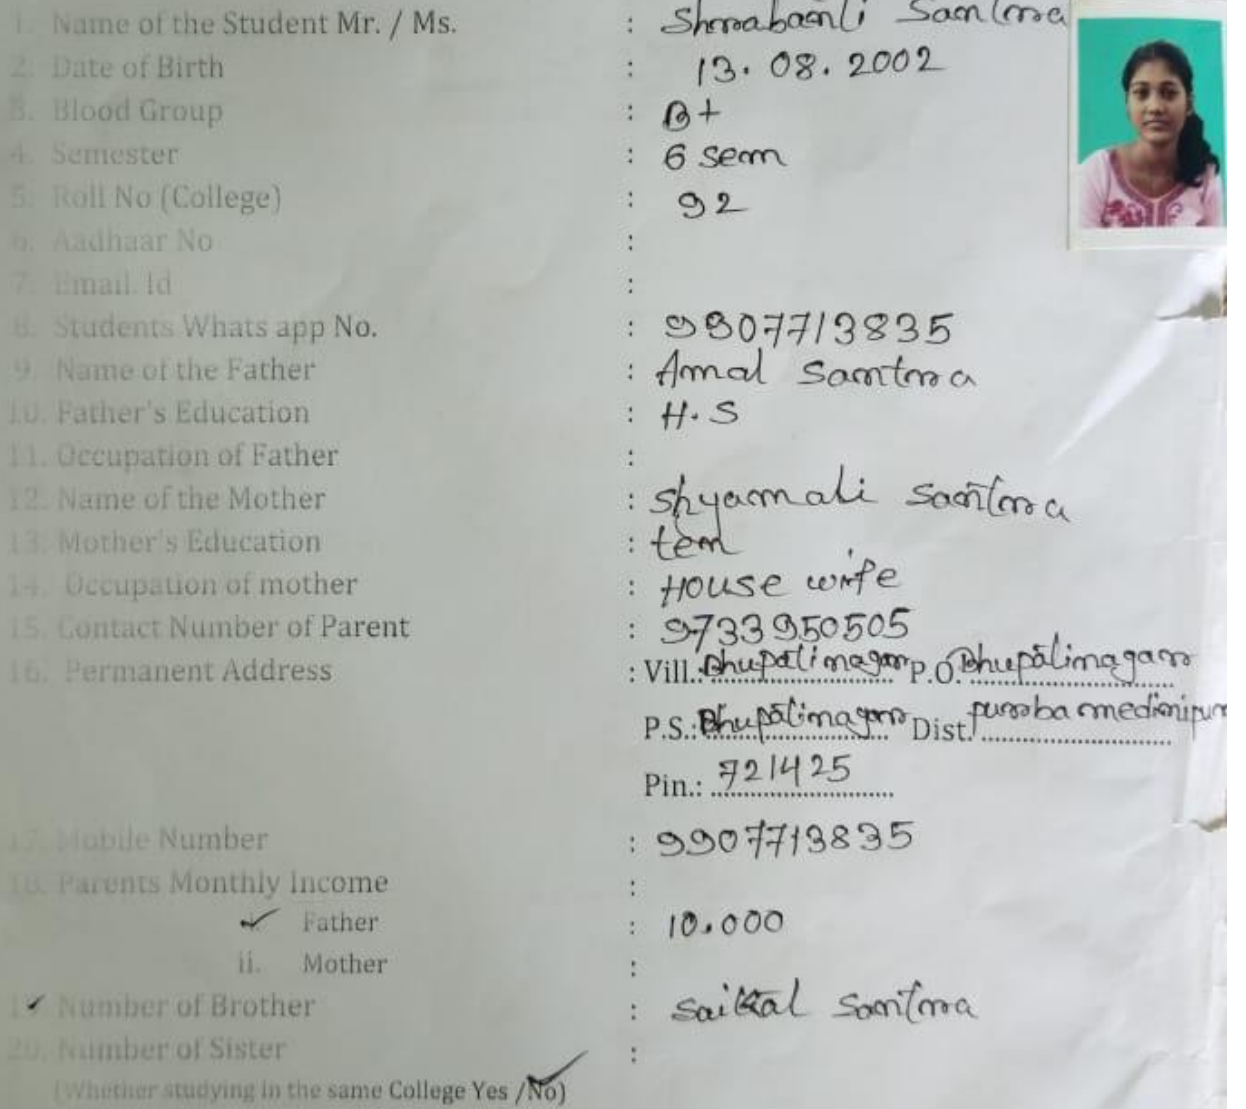 1. Name of the Student Mr. / Ms. : Shrabanti Santra
2. Date of Birth : 13.08.2002
3. Blood Group : B+
4. Semester : 6 sem
5. Roll No (College) : 92
6. Aadhaar No :
7. Email. Id :
8. Students Whats app No. : 9907713835
9. Name of the Father : Amal Santra
10. Father's Education : H.S
11. Occupation of Father :
12. Name of the Mother : Shyamali Santra
13. Mother's Education : ten
14. Occupation of mother : House wife
15. Contact Number of Parent : 9733950505
16. Permanent Address : Vill.: Bhupatinagar P.O. Bhupatinagar
P.S.: Bhupatinagar Dist. purba medinipur
Pin.: 721425
17. Mobile Number : 9907713835
18. Parents Monthly Income :
Father : 10.000
ii. Mother :
Number of Brother : Santra
20. Number of Sister :
(Whether studying in the same College Yes /No)